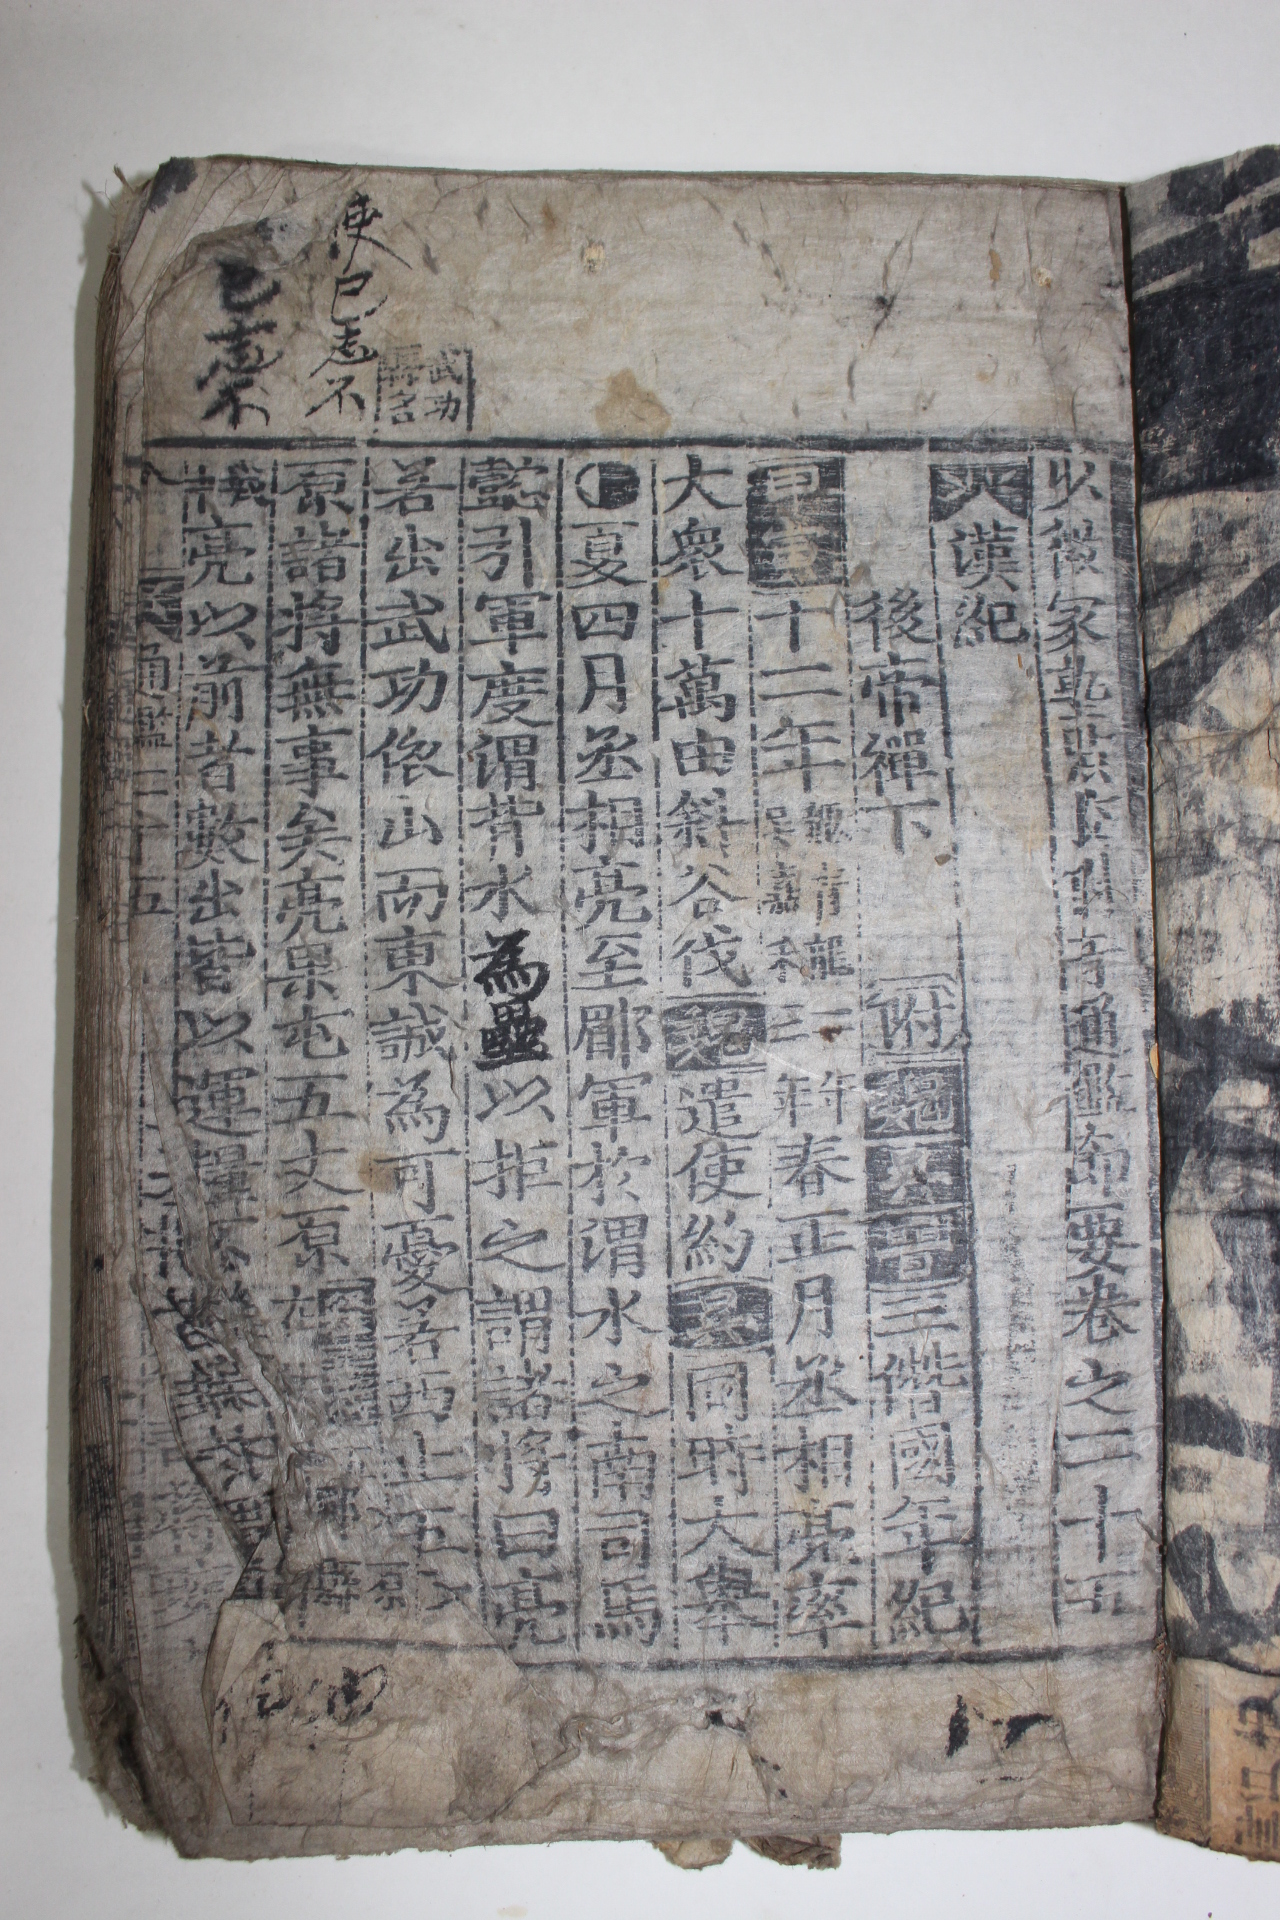 少微家塾點校附音通鑑節要卷之二十五
漢紀
後帝禪下 附魏吳晉三僭國年紀
甲寅十二年魏青龍二年吳嘉禾三年春正月丞相亮率
大衆十萬由斜谷伐魏遣使約吳同時大擧
夏四月丞相亮至郿軍於渭水之南司馬
懿引軍度渭背水為壘以拒之謂諸將曰亮
若出武功依山而東誠為可憂若西上五丈
原諸將無事矣亮果屯五丈原
亮以前者數出皆以運糧不
武功
縣名
使己志不
己志不
通鑑二十五